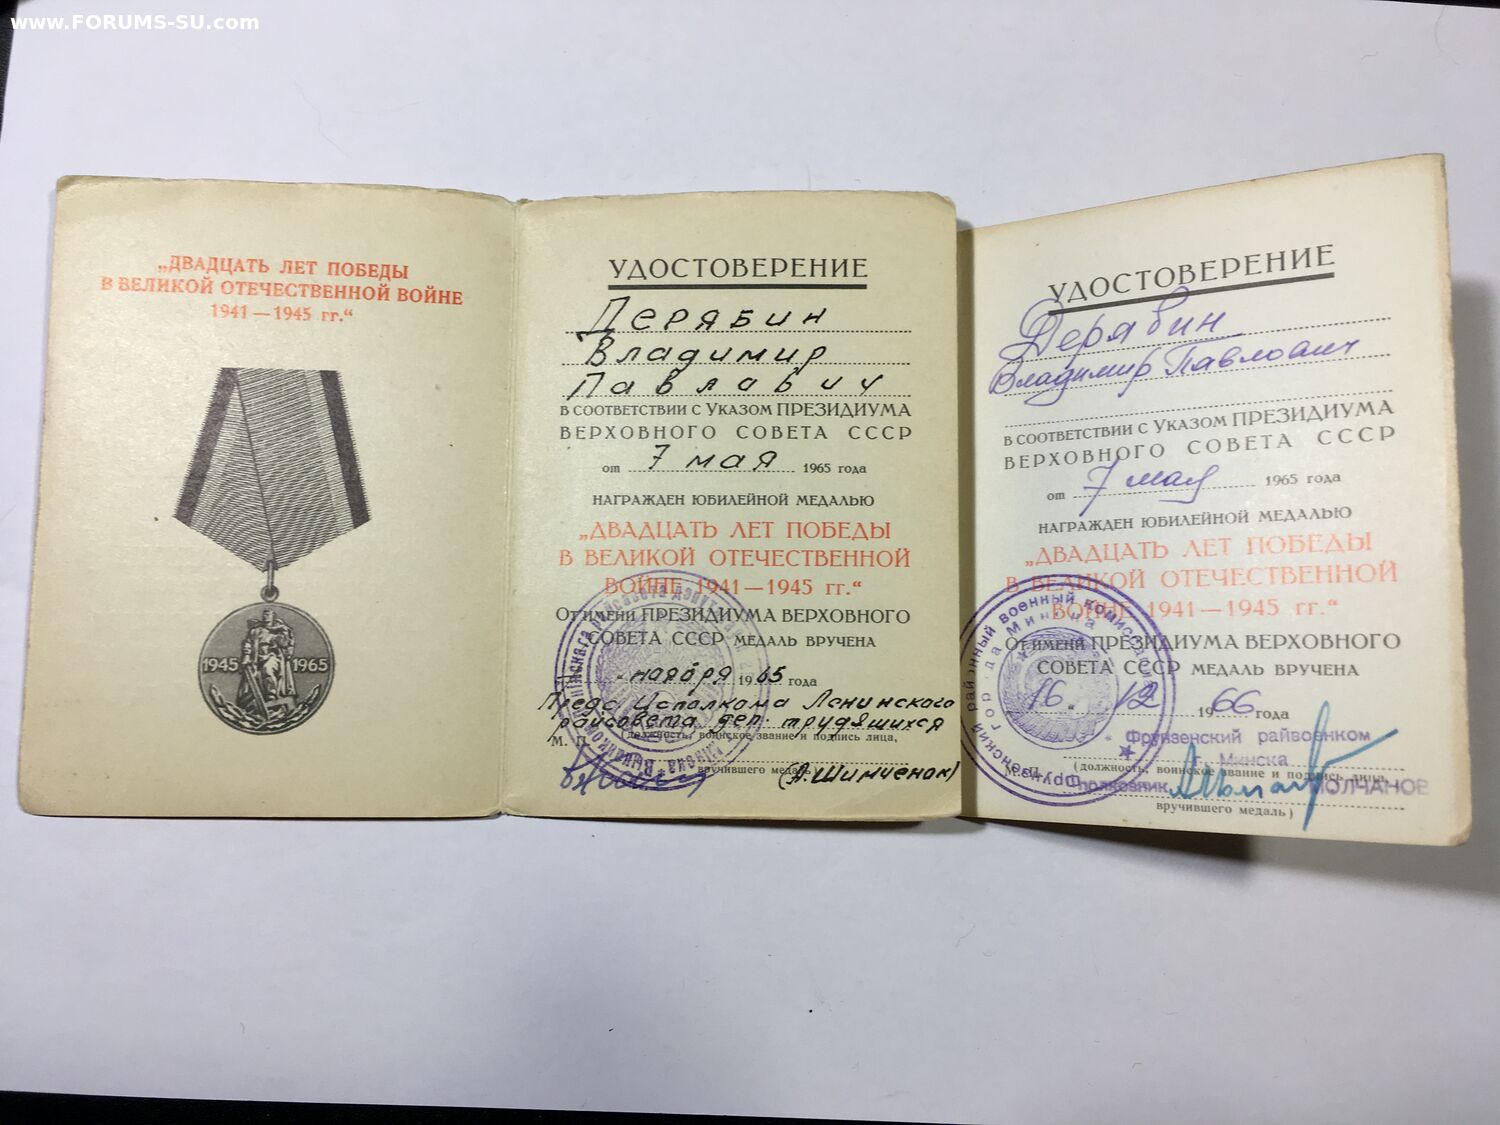 www.FORUMS-SU.com
„ДВАДЦАТЬ ЛЕТ ПОБЕДЫ
В ВЕЛИКОЙ ОТЕЧЕСТВЕННОЙ ВОЙНЕ
1941 — 1945 гг.“
1945 1965
УДОСТОВЕРЕНИЕ
Дерябин
Владимир
Павлавич
В СООТВЕТСТВИИ С УКАЗОМ ПРЕЗИДИУМА
ВЕРХОВНОГО СОВЕТА СССР
от 7 мая 1965 года
НАГРАЖДЕН ЮБИЛЕЙНОЙ МЕДАЛЬЮ
„ДВАДЦАТЬ ЛЕТ ПОБЕДЫ
В ВЕЛИКОЙ ОТЕЧЕСТВЕННОЙ
ВОЙНЕ 1941 — 1945 гг.“
От имени ПРЕЗИДИУМА ВЕРХОВНОГО
СОВЕТА СССР МЕДАЛЬ ВРУЧЕНА
ноября 1965 года
Пред. Исполкома Ленинского
райсовета деп. трудящихся
М. П. (должность, воинское звание и подпись лица,
вручившего медаль)
(А. Шимченок)
УДОСТОВЕРЕНИЕ
Дерябин
Владимир Павлович
В СООТВЕТСТВИИ С УКАЗОМ ПРЕЗИДИУМА
ВЕРХОВНОГО СОВЕТА СССР
от 7 мая 1965 года
НАГРАЖДЕН ЮБИЛЕЙНОЙ МЕДАЛЬЮ
„ДВАДЦАТЬ ЛЕТ ПОБЕДЫ
В ВЕЛИКОЙ ОТЕЧЕСТВЕННОЙ
ВОЙНЕ 1941 — 1945 гг.“
От имени ПРЕЗИДИУМА ВЕРХОВНОГО
СОВЕТА СССР МЕДАЛЬ ВРУЧЕНА
16. 12 1966 года
Фрунзенский райвоенком
г. Минска
М. П. (должность, воинское звание и подпись лица,
полковник МОЛЧАНОВ
вручившего медаль)
Фрунзенский районный военный комиссариат
города Минска